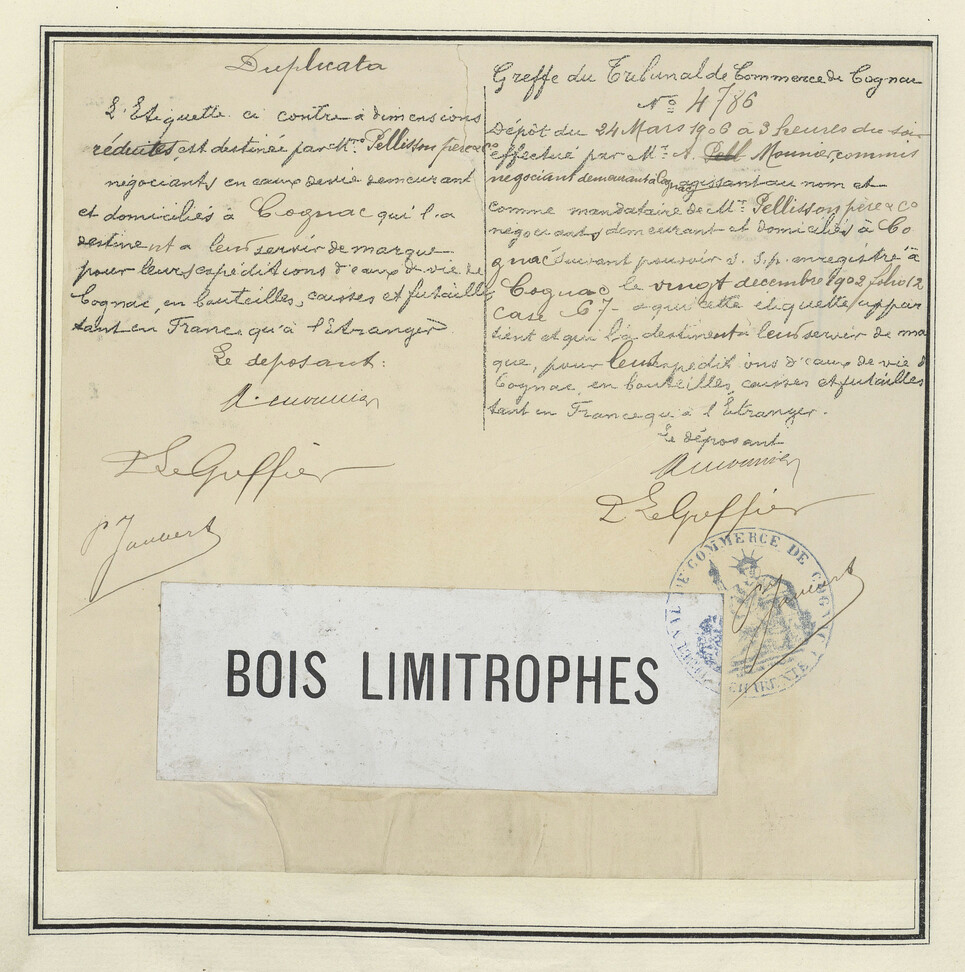 Duplicata
L'Etiquette ci contre à dimensions
réduites, est destinée par Mrs Pellisson père & Co
négociants en eaux de vie demeurant
et domiciliés à Cognac qui l'a
destinent a leur servir de marque
pour leurs expéditions d'eaux de vie de
Cognac, en bouteilles, caisses et futailles
tant en France qu'à l'Etranger
Le déposant:
A. Mounier
P Le Greffier
P Jaubert
Greffe du Tribunal de Commerce de Cognac
No 4786
Dépôt du 24 Mars 1906 à 3 heures du soir
effectué par Mr A. Mounier, commis
negociant demeurant à Cognac, agissant au nom et
comme mandataire de Mrs Pellisson père & Co
négociants demeurant et domiciliés à Co
gnac suivant pouvoir s. s. p. enregistré à
Cognac le vingt decembre 1902 folio 12
case 67 - a qui cette etiquette appar
tient et qui l'a destinent a leur servir de mar
que, pour leurs expéditions d'eaux de vie d
Cognac, en bouteilles, caisses et futailles
tant en France qu'à l'Etranger.
Le déposant
A Mounier
P Le Greffier
P Jaubert
TRIBUNAL DE COMMERCE DE COGNAC
CHARENTE
BOIS LIMITROPHES